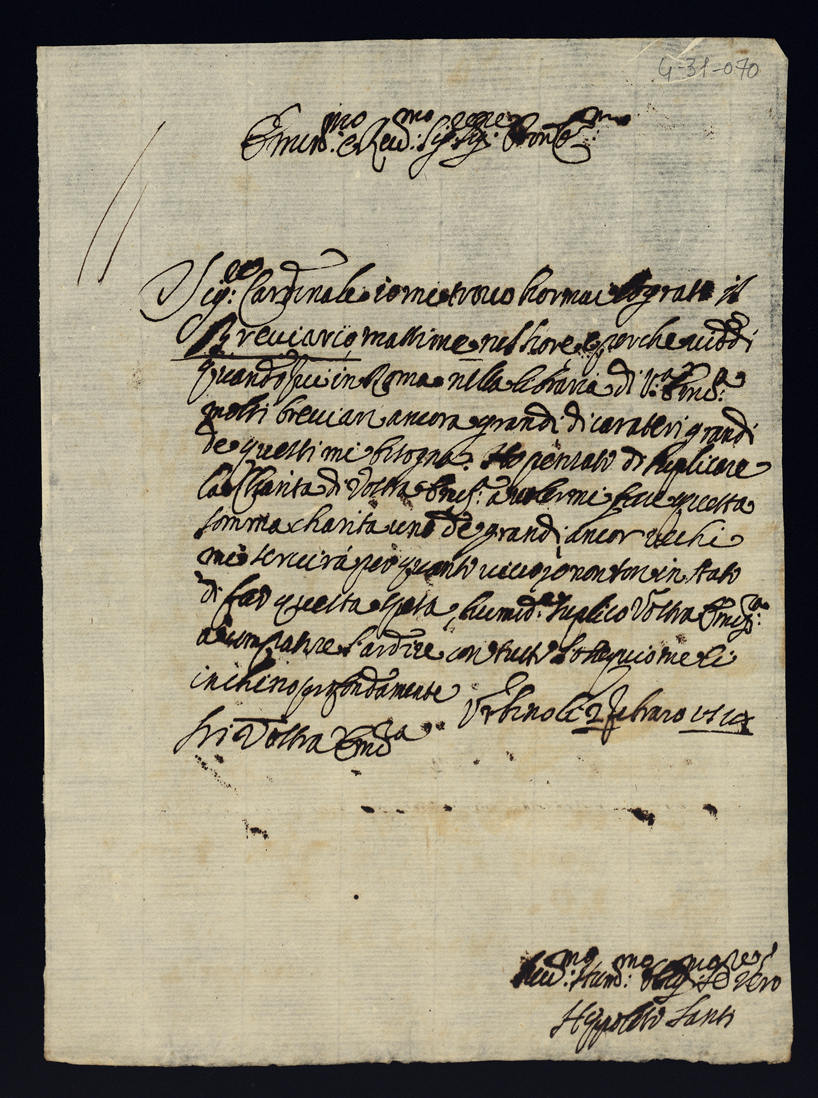 G-31-070
Emin.mo e Reu.mo Sig.re Sig.re Pron Col.mo
Sig.re Cardinale io mi trovo hormai lograto il
Breviario massime nel fiore e perche viddi
quando fui in Roma nella libraria di V.a Emi.a
molti breviari ancora grandi di carateri grandi
de questi mi bisogna. Ho pensato di suplicare
la Charita di Vostra Emi. a volermi fare questa
somma charita uno de grandi ancor vechi
mi servirá per quanto vivo, io non son in stato
di far questa spesa, humid.e suplico Vostra Emi.za
a compatire l'ardire con tutto l'ossequio me li
inchino profondamente
Di Vostra Emi.za Urbino li 2 febraro 1714
Reu.mo Hum.mo Oblig.mo Se.re vero
Hippolito Santi